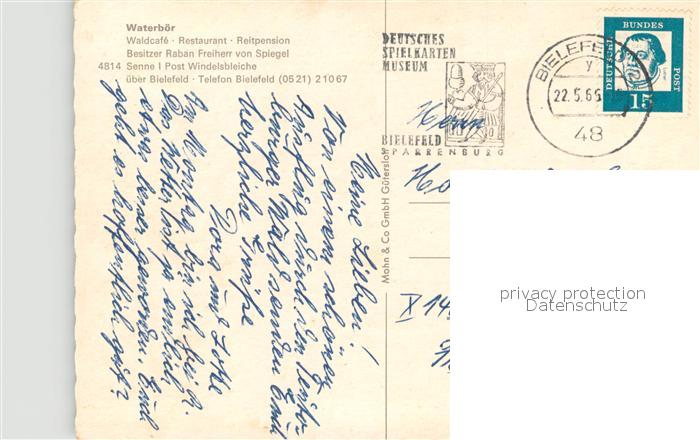 Waterbör
Waldcafé · Restaurant · Reitpension
Besitzer Raban Freiherr von Spiegel
4814 Senne I Post Windelsbleiche
über Bielefeld · Telefon Bielefeld (05 21) 2 10 67
DEUTSCHES
SPIELKARTEN
MUSEUM
BIELEFELD
SPARRENBURG
BIELEFELD
y
22.5.65
48
DEUTSCHE
BUNDES
POST
15
Mohn & Co GmbH Gütersloh
Meine Lieben!
Von einem schönen
Ausflug durch den Teuto-
burger Wald senden Euch
herzliche Grüße
Dora und
Am Montag bin ich bei
Das Wetter ist ja endlich
etwas besser geworden. Euch
geht es hoffentlich gut?
Herrn
X 14
privacy protection
Datenschutz